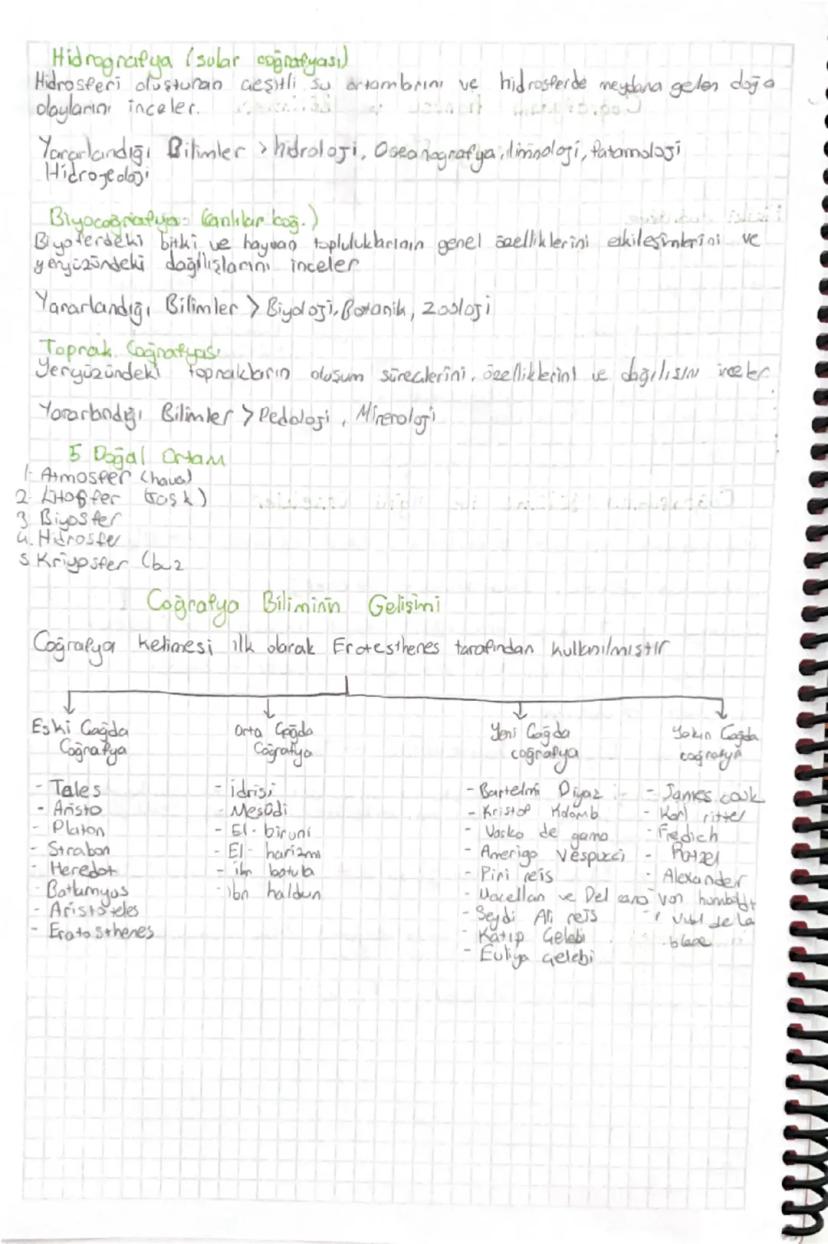 Hidrografya (sular coğrafyası)
Hidrosferi oluşturan çeşitli su ortamlarını ve hidrosferde meydana gelen doğa
olaylarını inceler.
Yararlandığı Bilimler > hidroloji, Oseanografya, limnoloji, Patamoloji
Hidrojeoloji
Biyocoğrafya: (canlılar coğ.)
Biyoferdeki bitki ve hayvan topluluklarının genel özelliklerini etkileşimlerini ve
yeryüzündeki dağılışlarını inceler
Yararlandığı Bilimler > Biyoloji, Botanik, Zooloji
Toprak Coğrafyası
Yeryüzündeki toprakların oluşum süreçlerini, özelliklerini ve dağılışını inceler
Yararlandığı Bilimler > Pedoloji, Mineroloji
5 Doğal Ortam
1- Atmosfer (hava)
2. Litosfer (taşk)
3 Biyosfer
4. Hidrosfer
5. Kriyosfer (buz
Coğrafya Biliminin Gelişimi
Coğrafya kelimesi ilk olarak Eratesthenes tarafından kullanılmıştır
Eski Çağda Orta Çağda Yeni Çağda Yakın Çağda
Coğrafya Coğrafya coğrafya coğrafya
- Tales - idrisi - Bartelmi Diyaz - James cook
- Aristo - Mesudi - Kristof Kolomb - Karl ritter
- Platon - El-biruni - Vasko de gama - Fredich
- Strabon - El-harizmi - Amerigo Vespucci - Ratzel
- Heredot - ibn batuta - Piri reis - Alexander
- Batlamyus - ibn haldun - Macellan ve Del cano von humboldt
- Aristoteles - Seydi Ali reis - Vidal de la
- Eratosthenes - Katip Çelebi blace
- Evliya Çelebi